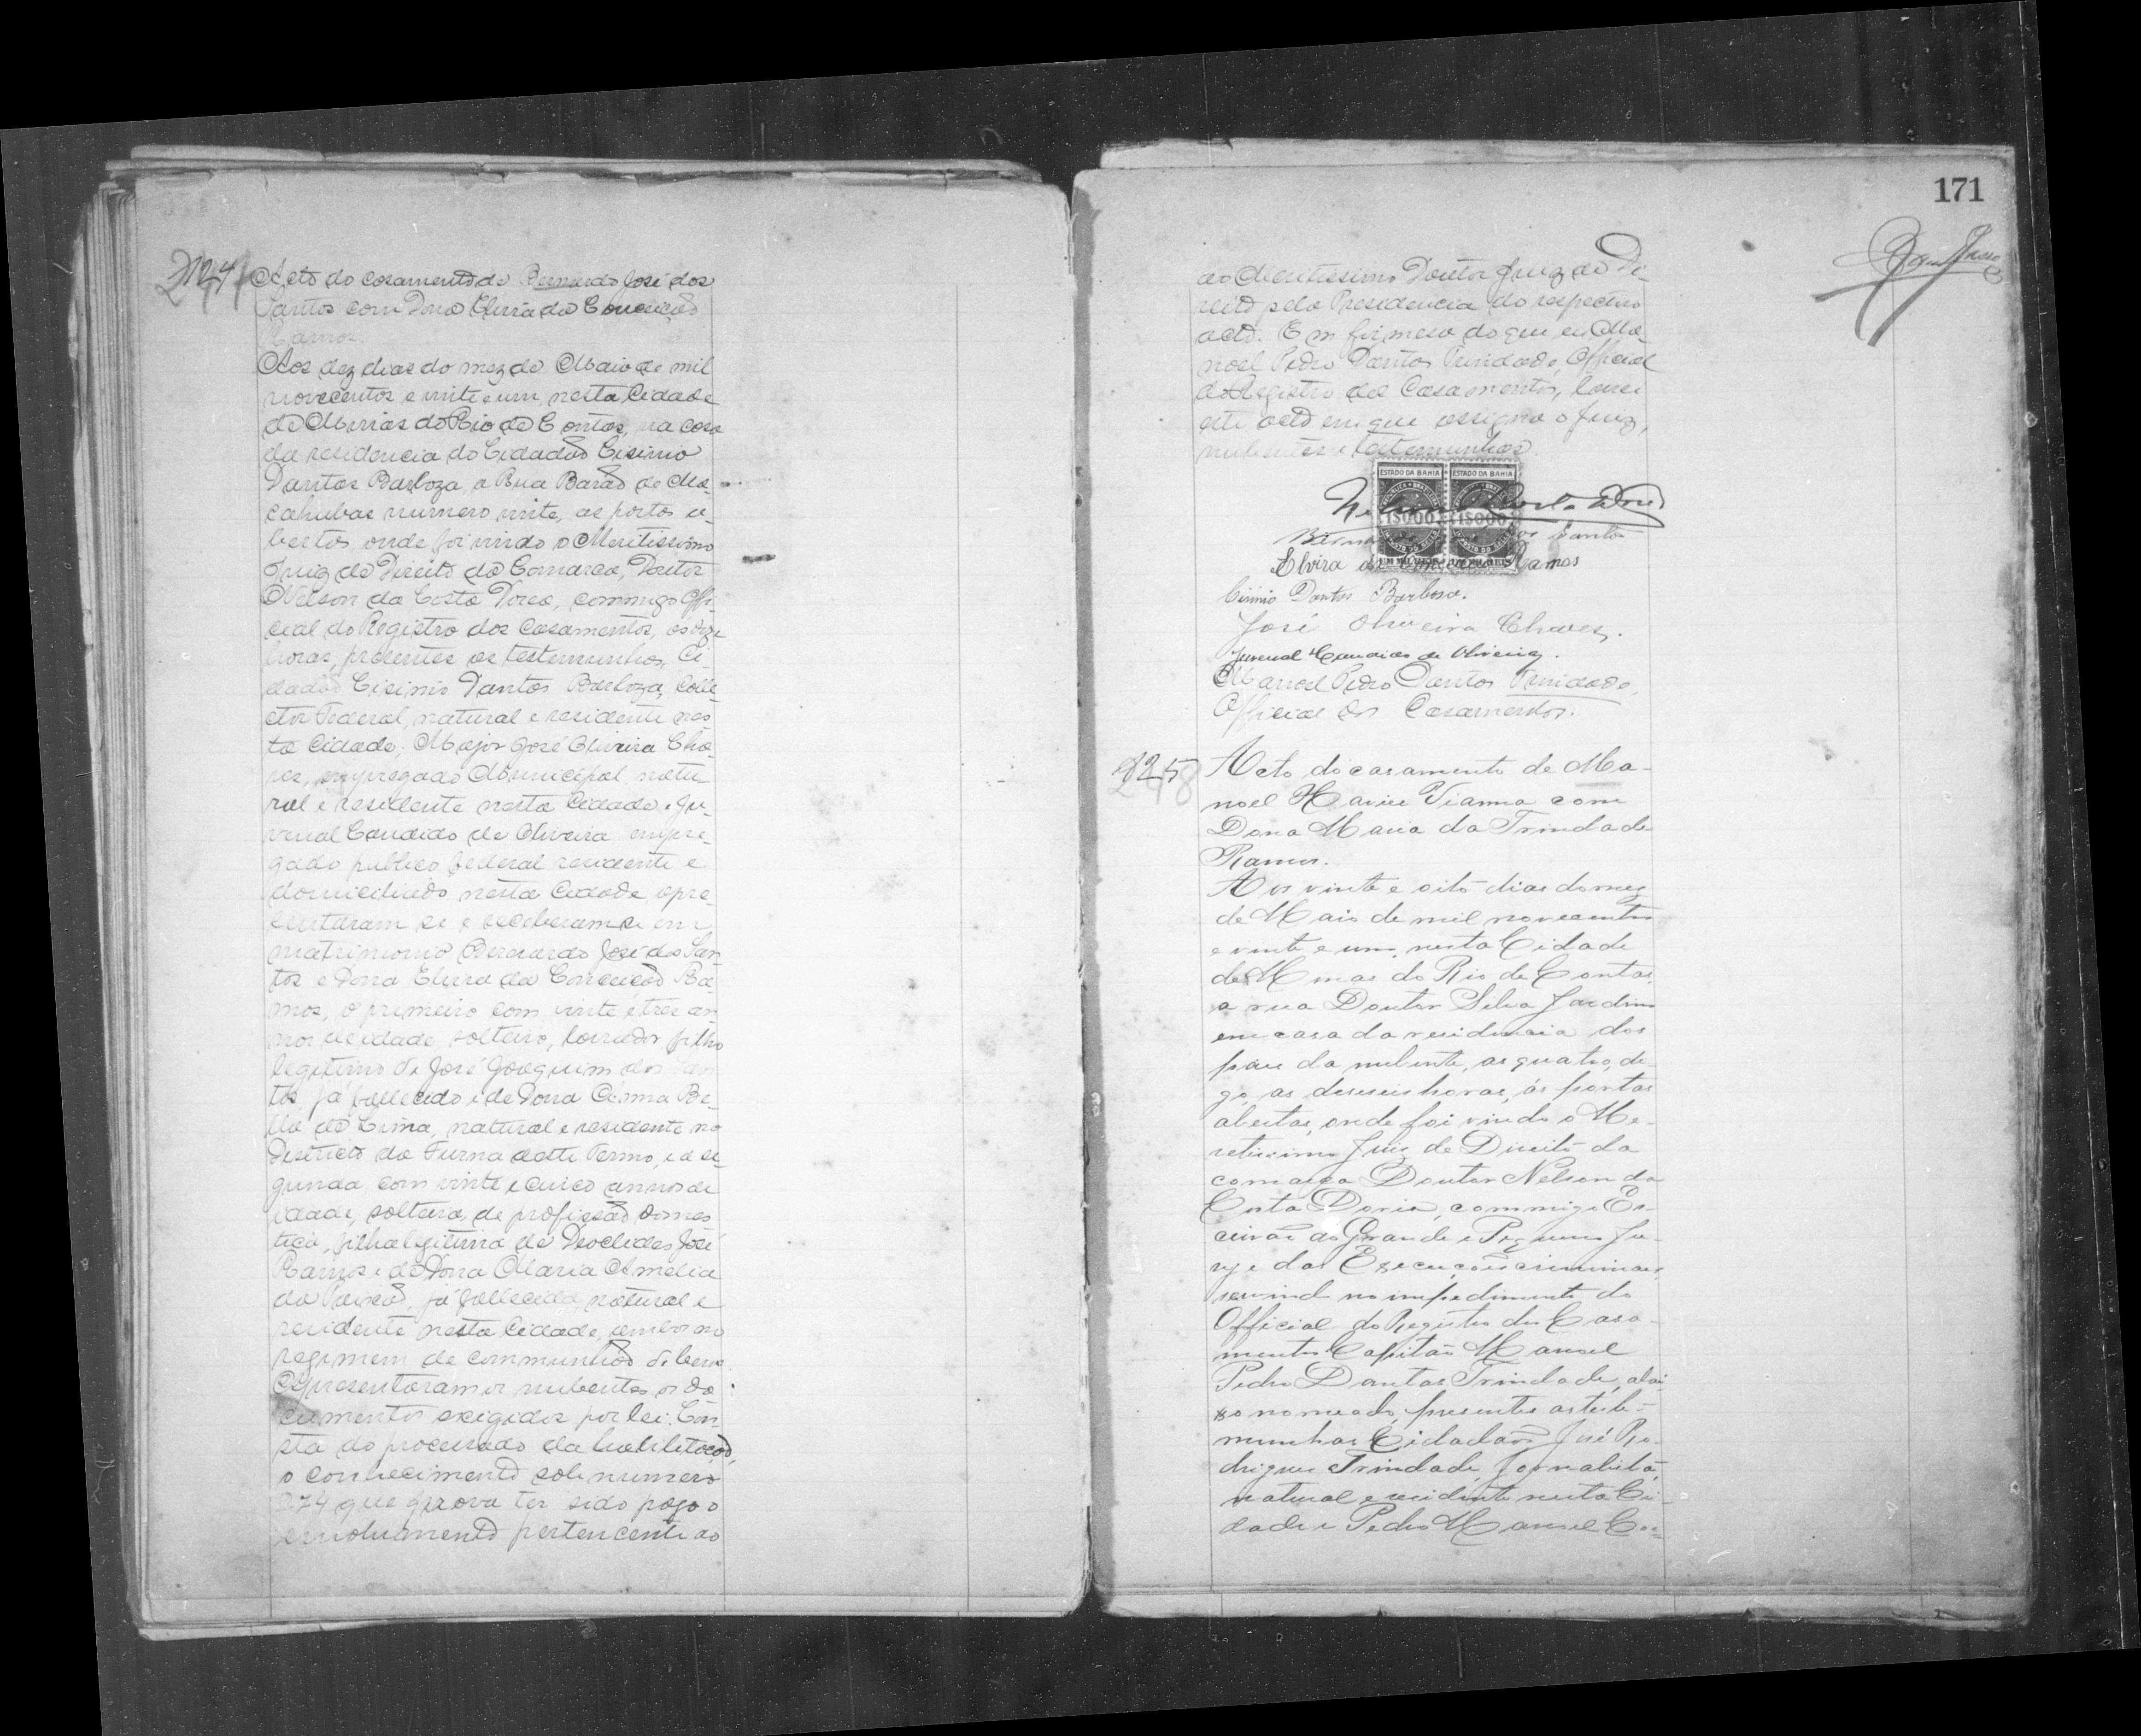 Acto do casamento de Bernardo José dos
Santos com Dona Elvira da Conceição
Ramos.
Aos dez dias do mez de Maio de mil
novecentos e vinte e um, nesta Cidade
de Minas do Rio de Contas, na casa
da residencia do Cidadão Cisinio
Dantas Barboza, a Rua Barão de Ma-
cahubas numero vinte, as portas a-
bertas, onde foi vindo o Meritissimo
Juiz de Direito da Comarca, Doutor
Nelson da Costa Doria, commigo Offi-
cial do Registro dos Casamentos, as
horas, presentes as testemunhas, Ci-
dadão Cisinio Dantas Barboza, Colle-
ctor Federal, natural e residente nes-
ta Cidade; Major José Oliveira Cha-
ves, empregado Municipal natu-
ral e residente nesta Cidade e Ju-
venal Candido de Oliveira empre-
gado publico federal residente e
domiciliado nesta Cidade apre-
sentaram se e receberam se em
matrimonio Bernardo José dos San-
tos e Dona Elvira da Conceição Ra-
mos, o primeiro com vinte e tres an-
nos de idade solteiro, lavrador filho
legitimo de José Joaquim dos San-
tos já fallecido e de Dona Be-
lla de Lima, natural e residente no
Districto da Furna deste Termo, e a se-
gunda com vinte e cinco annos de
idade, solteira, de profissão domes-
tica, filha legitima de Deoclides José
Ramos e de Dona Maria Amelia
da já fallecida, natural e
residente nesta Cidade, ambos no
regimem de communhão de bens.
Apresentaram os nubentes os do-
cumentos exigidos por lei. Con-
sta do processado da habilitação,
o conhecimento sob numero
274 que prova ter sido pago o
emolumento pertencente ao
171
ao Meritissimo Doutor Juiz de Di-
reito pela Presidencia do respectivo
acto. Em firmeza do que eu Ma-
noel Pedro Dantas Trindade, Official
do Registro dos Casamentos, lavrei
este acto em que assigna o Juiz,
nubentes e testemunhas.
ESTADO DA BAHIA ESTADO DA BAHIA
1$000 1$000
Nelson da Costa Doria
Bernardo José dos Santos
Elvira da Conceição Ramos
Cisinio Dantas Barbosa.
José Oliveira Chaves.
Juvenal Candido de Oliveira.
Manoel Pedro Dantas Trindade,
Official dos Casamentos.
Acto do casamento de Ma-
noel Xavier Vianna com
Dona Maria da Trindade
Ramos.
Aos vinte e oito dias do mez
de Maio de mil novecentos
e vinte e um, nesta Cidade
de Minas do Rio de Contas,
a rua Doutor Silva Jardim
em casa da residencia dos
paes da nubente, as quatro, di-
go, as deseseis horas, ás portas
abertas, onde foi vindo o Me-
retissimo Juiz de Direito da
comarca Doutor Nelson da
Costa Doria, commigo Es-
crivão do Grande e Pequeno Ju-
ry e das Execuções criminaes,
servindo no impedimento do
Official do Registro dos Casa-
mentos Capitão Manoel
Pedro Dantas Trindade, abai-
xo nomeado, presentes as teste-
munhas Cidadãos José Ro-
drigues Trindade, Jornalista,
natural e residente nesta Ci-
dade e Pedro Manoel